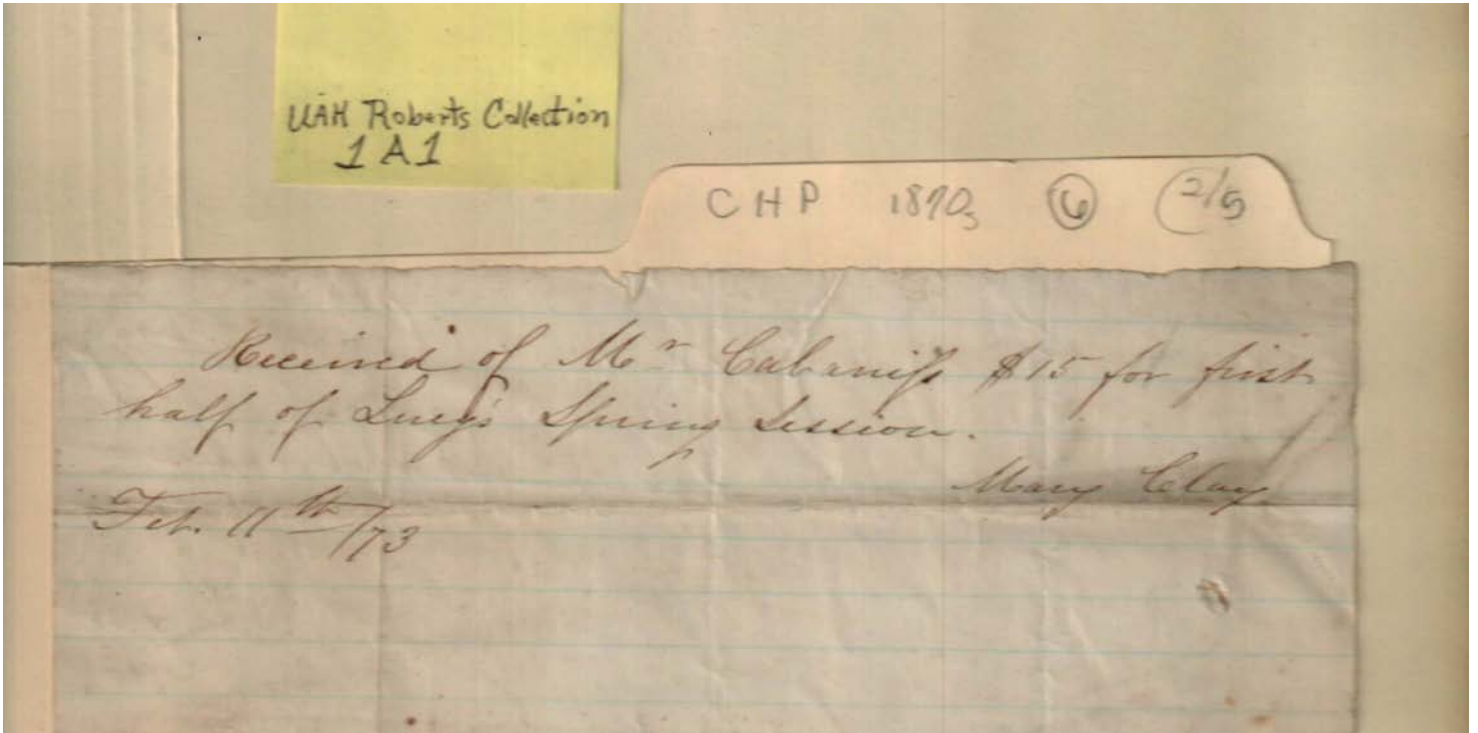 UAH Roberts Collection
1A1
CHP 1870s 6 2/5
Received of Mr Cabaniss $15 for first
half of Lucy's Spring Session.
Mary Clay
Feb. 11th/73